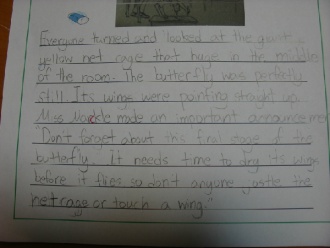 Everyone turned and looked at the gaint
yellow net cage that hung in the middle
of the room. The butterfly was perfectly
still. Its wings were pointing straight up.
Miss made an important announcement
"Don't forget about this final stage of the
butterfly." It needs time to dry its wings
before it flies so don't anyone jostle the
net cage or touch a wing."